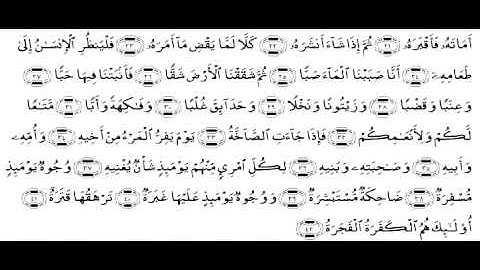 أَمَاتَهُۥ فَأَقْبَرَهُۥ ٢١ ثُمَّ إِذَا شَآءَ أَنشَرَهُۥ ٢٢ كَلَّا لَمَّا يَقْضِ مَآ أَمَرَهُۥ ٢٣ فَلْيَنظُرِ ٱلْإِنسَٰنُ إِلَىٰ
طَعَامِهِۦٓ ٢٤ أَنَّا صَبَبْنَا ٱلْمَآءَ صَبًّا ٢٥ ثُمَّ شَقَقْنَا ٱلْأَرْضَ شَقًّا ٢٦ فَأَنۢبَتْنَا فِيهَا حَبًّا ٢٧
وَعِنَبًا وَقَضْبًا ٢٨ وَزَيْتُونًا وَنَخْلًا ٢٩ وَحَدَآئِقَ غُلْبًا ٣٠ وَفَٰكِهَةً وَأَبًّا ٣١ مَّتَٰعًا
لَّكُمْ وَلِأَنْعَٰمِكُمْ ٣٢ فَإِذَا جَآءَتِ ٱلصَّآخَّةُ ٣٣ يَوْمَ يَفِرُّ ٱلْمَرْءُ مِنْ أَخِيهِ ٣٤ وَأُمِّهِۦ
وَأَبِيهِ ٣٥ وَصَٰحِبَتِهِۦ وَبَنِيهِ ٣٦ لِكُلِّ ٱمْرِئٍ مِّنْهُمْ يَوْمَئِذٍ شَأْنٌ يُغْنِيهِ ٣٧ وُجُوهٌ يَوْمَئِذٍ
مُّسْفِرَةٌ ٣٨ ضَاحِكَةٌ مُّسْتَبْشِرَةٌ ٣٩ وَوُجُوهٌ يَوْمَئِذٍ عَلَيْهَا غَبَرَةٌ ٤٠ تَرْهَقُهَا قَتَرَةٌ ٤١
أُو۟لَٰٓئِكَ هُمُ ٱلْكَفَرَةُ ٱلْفَجَرَةُ ٤٢